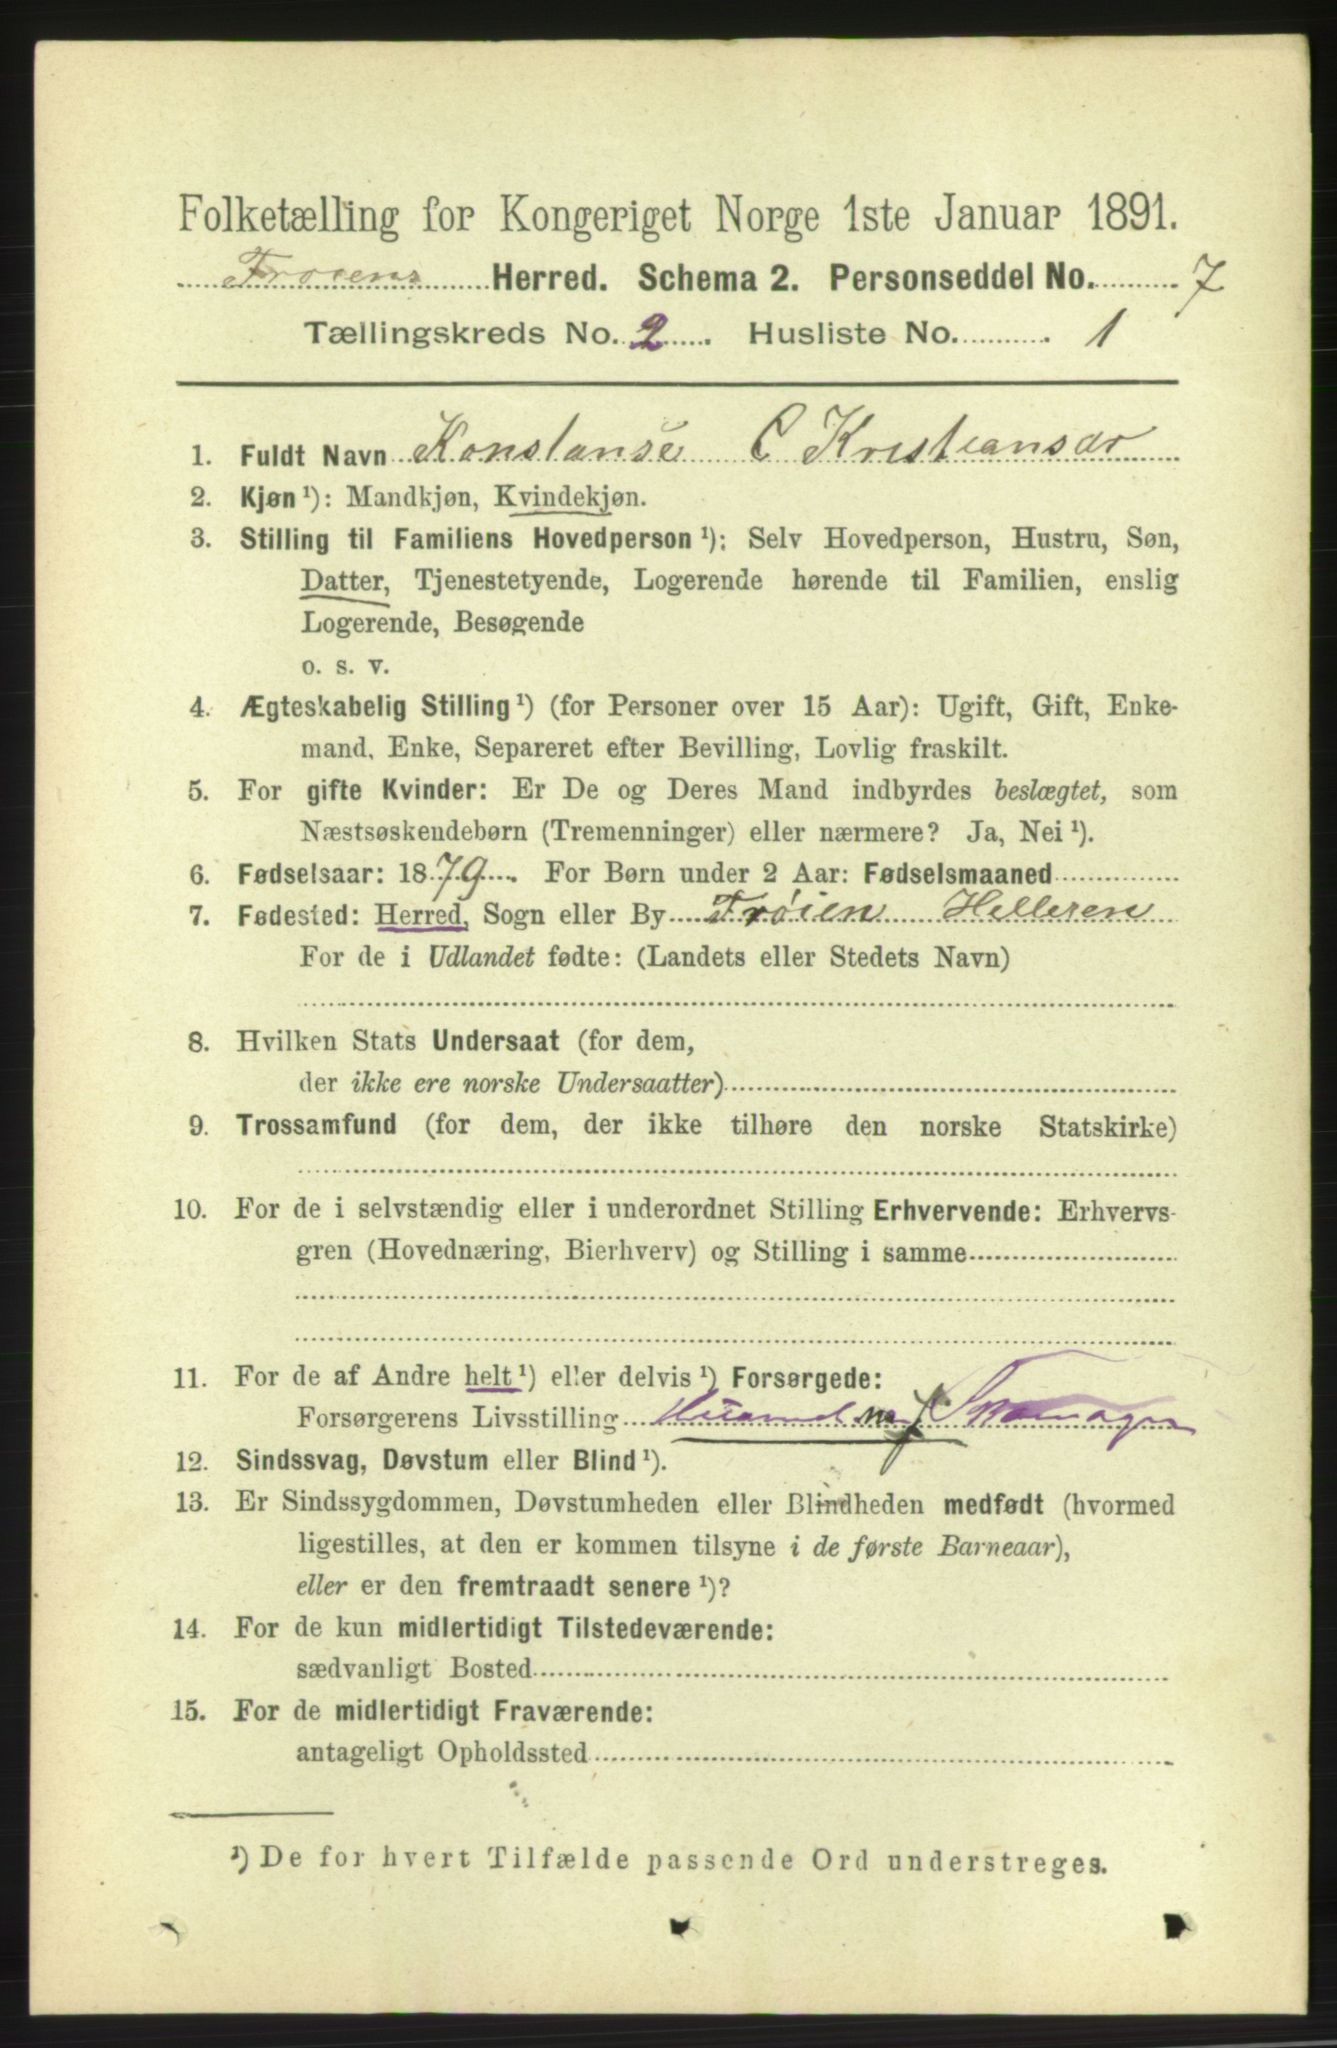 Folketælling for Kongeriget Norge 1ste Januar 1891.
Frøiens Herred. Schema 2. Personseddel No. 7
Tællingskreds No. 2. Husliste No. 1
1. Fuldt Navn Konstanse C Kristiansdr
2. Kjøn ¹): Mandkjøn, Kvindekjøn.
3. Stilling til Familiens Hovedperson ¹): Selv Hovedperson, Hustru, Søn,
Datter, Tjenestetyende, Logerende hørende til Familien, enslig
Logerende, Besøgende
o. s. v.
4. Ægteskabelig Stilling ¹) (for Personer over 15 Aar): Ugift, Gift, Enke-
mand, Enke, Separeret efter Bevilling, Lovlig fraskilt.
5. For gifte Kvinder: Er De og Deres Mand indbyrdes beslægtet, som
Næstsøskendebørn (Tremenninger) eller nærmere? Ja, Nei ¹).
6. Fødselsaar: 1879. For Børn under 2 Aar: Fødselsmaaned
7. Fødested: Herred, Sogn eller By Frøien Helleren
For de i Udlandet fødte: (Landets eller Stedets Navn)
8. Hvilken Stats Undersaat (for dem,
der ikke ere norske Undersaatter)
9. Trossamfund (for dem, der ikke tilhøre den norske Statskirke)
10. For de i selvstændig eller i underordnet Stilling Erhvervende: Erhvervs-
gren (Hovednæring, Bierhverv) og Stilling i samme
11. For de af Andre helt ¹) eller delvis ¹) Forsørgede:
Forsørgerens Livsstilling
12. Sindssvag, Døvstum eller Blind ¹).
13. Er Sindssygdommen, Døvstumheden eller Blindheden medfødt (hvormed
ligestilles, at den er kommen tilsyne i de første Barneaar),
eller er den fremtraadt senere ¹)?
14. For de kun midlertidigt Tilstedeværende:
sædvanligt Bosted
15. For de midlertidigt Fraværende:
antageligt Opholdssted
¹) De for hvert Tilfælde passende Ord understreges.